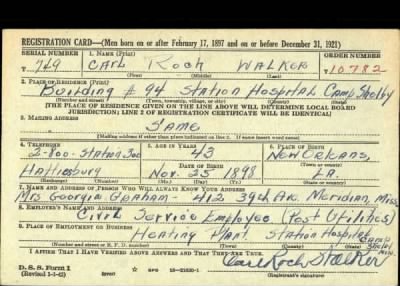 REGISTRATION CARD—(Men born on or after February 17, 1897 and on or before December 31, 1921)
SERIAL NUMBER 1. NAME (Print) ORDER NUMBER
T 749 CARL Roch WALKER 10782
(First) (Middle) (Last)
2. PLACE OF RESIDENCE (Print)
Building # 94 Station Hospital Camp Shelby
(Number and street) (Town, township, village, or city) (County) (State)
[THE PLACE OF RESIDENCE GIVEN ON THE LINE ABOVE WILL DETERMINE LOCAL BOARD
JURISDICTION; LINE 2 OF REGISTRATION CERTIFICATE WILL BE IDENTICAL]
3. MAILING ADDRESS
Same
[Mailing address if other than place indicated on line 2. If same insert word same]
4. TELEPHONE 5. AGE IN YEARS 6. PLACE OF BIRTH
2-800-Station 43 New Orleans,
Hattiesburg DATE OF BIRTH (Town or county)
Nov. 25 1898 LA.
(Exchange) (Number) (Mo.) (Day) (Yr.) (State or country)
7. NAME AND ADDRESS OF PERSON WHO WILL ALWAYS KNOW YOUR ADDRESS
Mrs Georgia Graham - 412 39th Ave. Meridian, Miss.
8. EMPLOYER'S NAME AND ADDRESS
Civil Service Employee (Post Utilities)
9. PLACE OF EMPLOYMENT OR BUSINESS
Heating Plant Station Hospital Camp Shelby Miss.
(Number and street or R. F. D. number) (Town) (County) (State)
I AFFIRM THAT I HAVE VERIFIED ABOVE ANSWERS AND THAT THEY ARE TRUE.
D. S. S. Form 1 Carl Roch Walker
(Revised 1-1-42) (over) GPO 16—21630-1 (Registrant's signature)